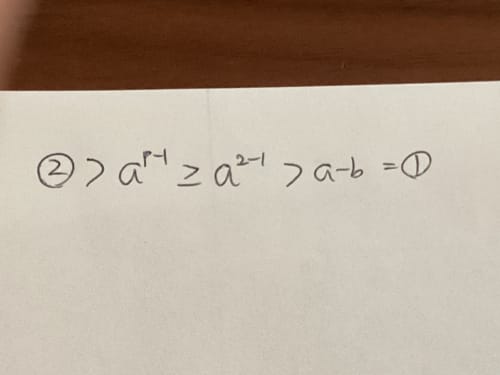 ② > a^{p-1} ≥ a^{2-1} > a-b = ①